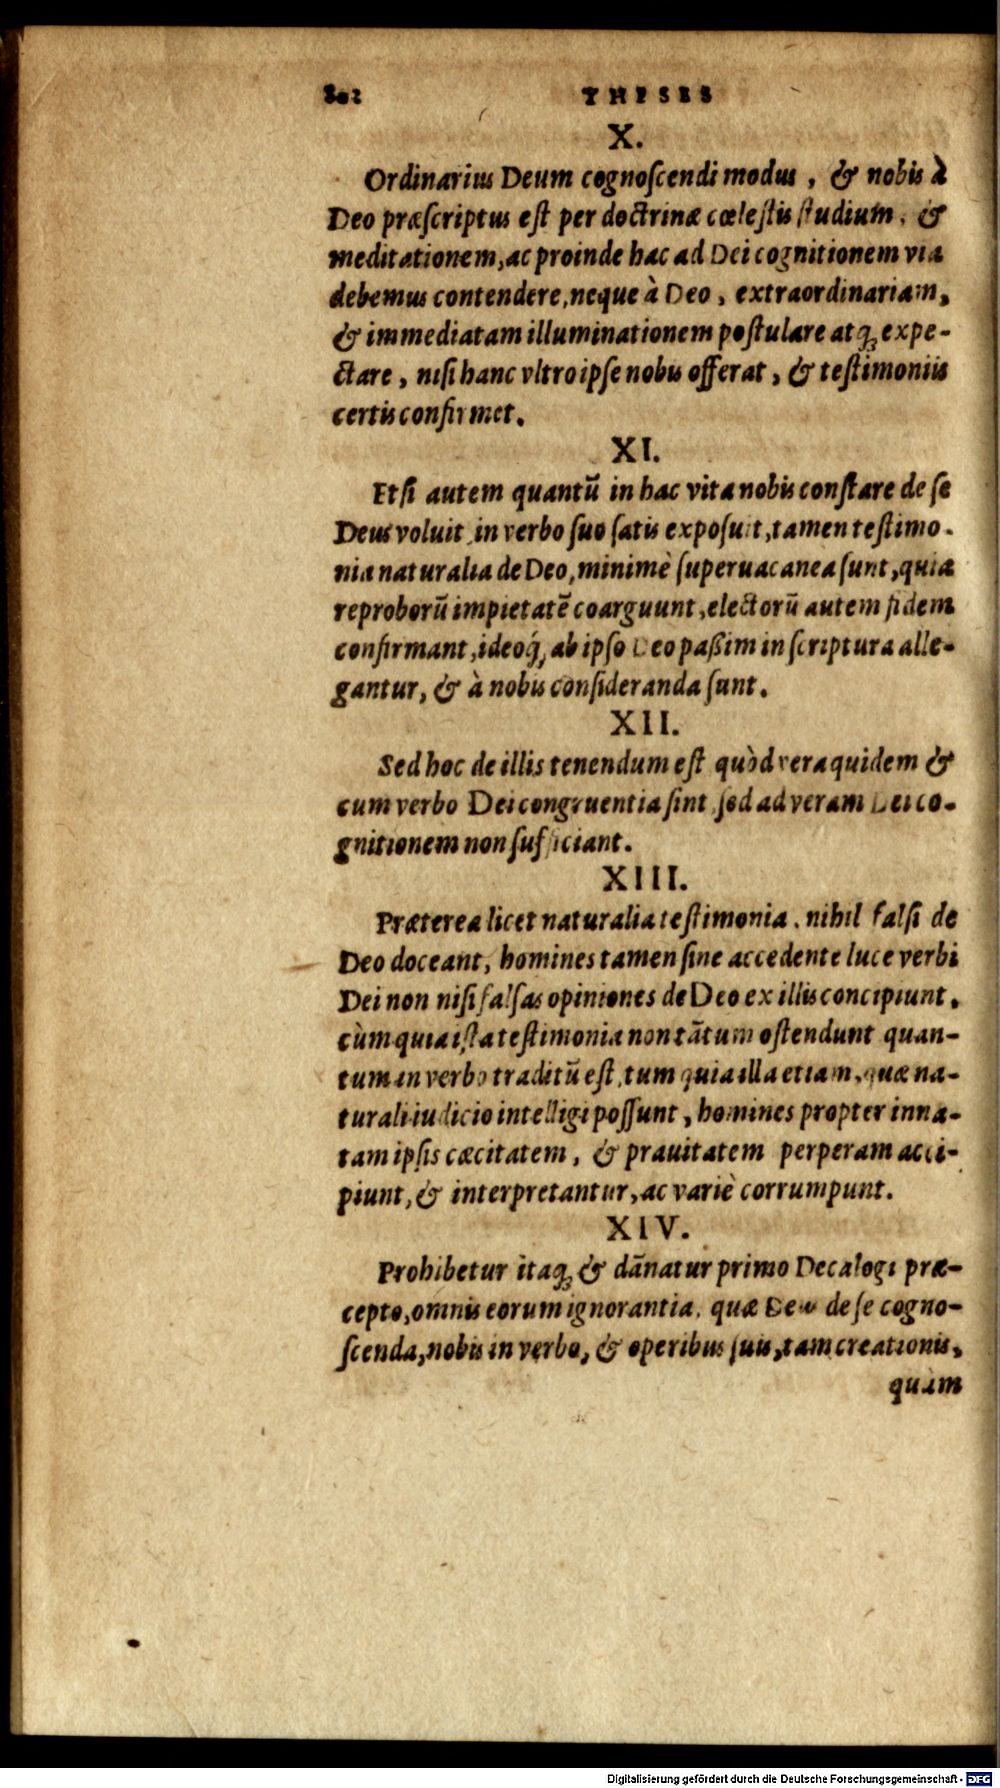 802 THESES
X.
Ordinarius Deum cognoſcendi modus, & nobis à
Deo præſcriptus eſt per doctrinæ cœleſtis ſtudium, &
meditationem, ac proinde hac ad Dei cognitionem via
debemus contendere, neque à Deo, extraordinariam,
& immediatam illuminationem poſtulare atq; expe-
ctare, niſi hanc vltro ipſe nobis offerat, & teſtimoniis
certis confirmet.
XI.
Etſi autem quantū in hac vita nobis conſtare de ſe
Deus voluit in verbo ſuo ſatis expoſuit, tamen teſtimo-
nia naturalia de Deo, minimè ſuperuacanea ſunt, quia
reproborū impietatē coarguunt, electorū autem fidem
confirmant, ideoq́; ab ipſo Deo paßim in ſcriptura alle-
gantur, & à nobis conſideranda ſunt.
XII.
Sed hoc de illis tenendum eſt quòd vera quidem &
cum verbo Dei congruentia ſint ſed ad veram Dei co-
gnitionem non ſufficiant.
XIII.
Præterea licet naturalia teſtimonia, nihil falſi de
Deo doceant, homines tamen ſine accedente luce verbi
Dei non niſi falſas opiniones de Deo ex illis concipiunt,
cùm quia iſta teſtimonia non tātum oſtendunt quan-
tum in verbo traditū eſt, tum quia illa etiam, quæ na-
turali iudicio intelligi poſſunt, homines propter inna-
tam ipſis cæcitatem, & prauitatem perperam acci-
piunt, & interpretantur, ac variè corrumpunt.
XIV.
Prohibetur itaq; & dānatur primo Decalogi præ-
cepto, omnis eorum ignorantia, quæ Deus de ſe cogno-
ſcenda, nobis in verbo, & operibus ſuis, tam creationis,
quàm
Digitalisierung gefördert durch die Deutsche Forschungsgemeinschaft - DFG